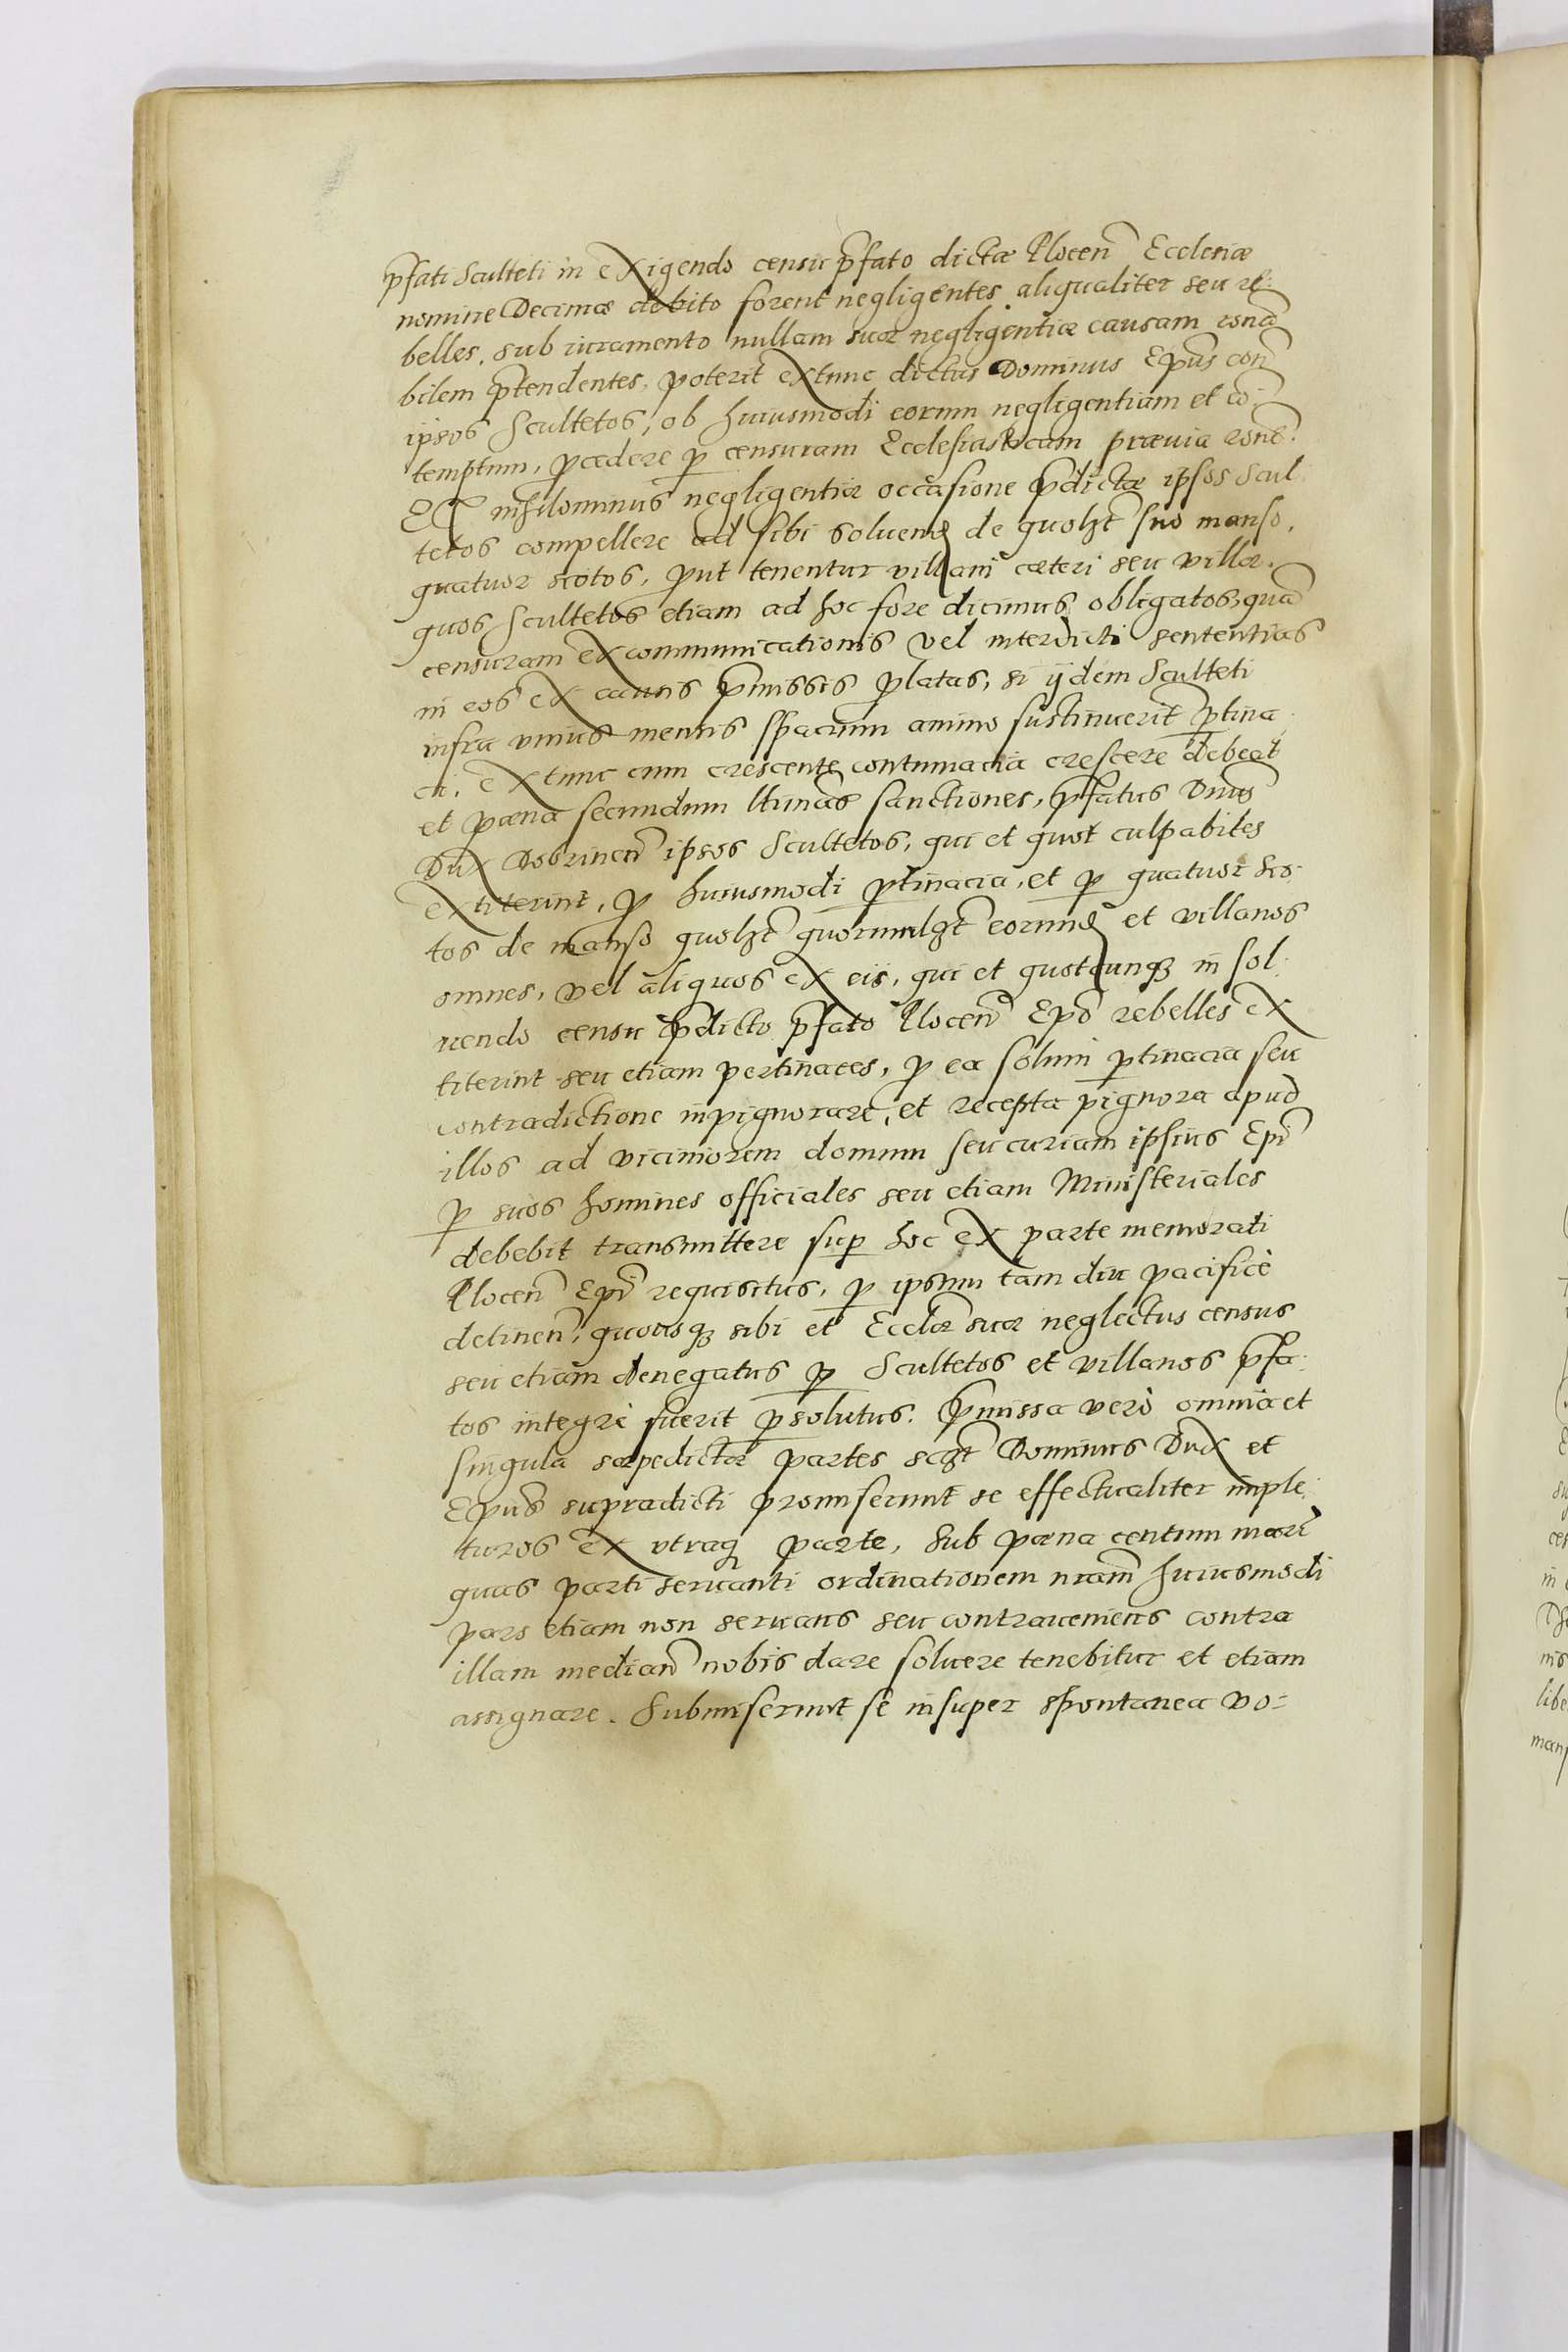 pfati Sculteti in exigendo censu pfato dictæ Plocen̄ Ecclesiæ
nomine Decimæ debito forent negligentes aliqualiter seu re-
belles, sub iuramento nullam suæ negligentiæ causam rōna
bilem p̄tendentes, poterit extunc dictus Dominus Epūs con̄
ipsos Scultetos, ob huiusmodi eorum negligentiam et cō-
temptum, pcedere p censuram Ecclesiasticam prævia rōne.
Et nihilominus negligentiæ occasione p̄dictæ ipsos Scul-
tetos compellere ad sibi soluend de quolꝫt suo manso,
quatuor scotos, put tenentur villani cæteri seu villæ.
quos Scultetos etiam ad hoc fore dicimus obligatos, quā
censuram excommunicationis vel interdicti sententias
in eos ex causis p̄missis platas, si ijdem Sculteti
infra vnius mensis spacium animo sustinuerīt ptina
ci, extunc cum crescente contumacia crescere debeat
et pœna secundum ltimas sanctiones, p̄fatus Dnūs
Dux Dobrinen̄ ipsos Scultetos, qui et quot culpabiles
extiterint, p huiusmodi ptinacia, et p quatuor sco-
tos de manso quolꝫt quorumlꝫt eorund et villanos
omnes, vel aliquos ex eis, qui et quotcunqꝫ in sol-
uendo censu p̄dicto p̄fato Plocen̄ Epō rebelles ex
titerint seu etiam pertinaces, p ea solum ptinacia seu
contradictione inpignorare, et recepta pignora apud
illos ad viciniorem domum seu curiam ipsius Epī
p suos homines officiales seu etiam Ministeriales
debebit transmittere sup hoc ex parte memorati
Plocen̄ Epī requisitus, p ipsum tam diu pacificè
detinen̄, quousqꝫ sibi et Ecclæ suæ neglectus census
seu etiam denegatus p Scultetos et villanos p̄fa-
tos integrè fuerit psolutus. P̄missa verò omnia et
singula sæpedictæ partes scꝫt Dominus Dux et
Epūs supradicti promiserunt se effectualiter imple-
turos ex vtraqꝫ parte, sub pœna centum marc̄
quas parti seruanti ordinationem nram̄ huiusmodi
pars etiam non seruans seu contraueniens contra
illam median̄ nobis dare soluere tenebitur et etiam
assignare. Submiserunt se insuper spontanea vo=